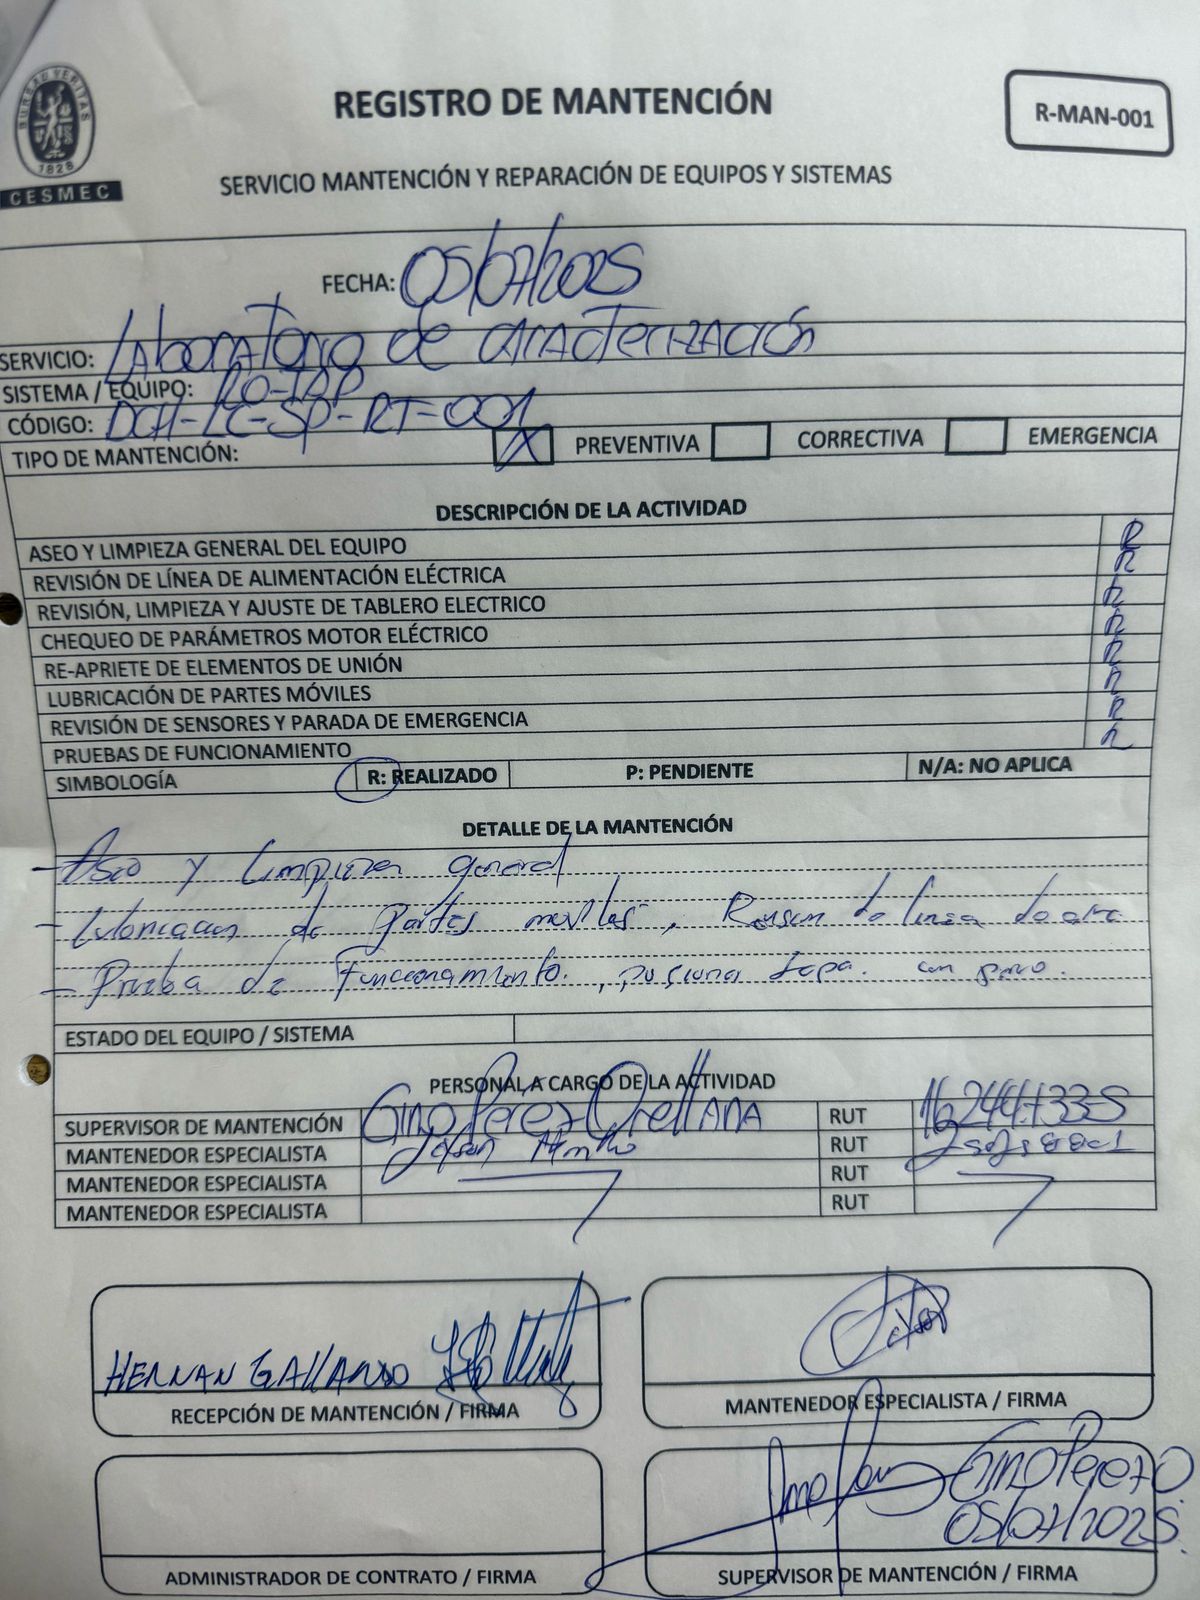 BUREAU VERITAS
1828
CESMEC
REGISTRO DE MANTENCIÓN
R-MAN-001
SERVICIO MANTENCIÓN Y REPARACIÓN DE EQUIPOS Y SISTEMAS
FECHA: 05/07/2025
SERVICIO: Laboratorio de caracterización
SISTEMA / EQUIPO: RO-TAP
CÓDIGO: DCH-LC-SP-RT-001
TIPO DE MANTENCIÓN: X PREVENTIVA CORRECTIVA EMERGENCIA
DESCRIPCIÓN DE LA ACTIVIDAD
ASEO Y LIMPIEZA GENERAL DEL EQUIPO R
REVISIÓN DE LÍNEA DE ALIMENTACIÓN ELÉCTRICA R
REVISIÓN, LIMPIEZA Y AJUSTE DE TABLERO ELECTRICO R
CHEQUEO DE PARÁMETROS MOTOR ELÉCTRICO R
RE-APRIETE DE ELEMENTOS DE UNIÓN R
LUBRICACIÓN DE PARTES MÓVILES R
REVISIÓN DE SENSORES Y PARADA DE EMERGENCIA R
PRUEBAS DE FUNCIONAMIENTO R
SIMBOLOGÍA R: REALIZADO P: PENDIENTE N/A: NO APLICA
DETALLE DE LA MANTENCIÓN
- Aseo y Limpieza general
- Lubricacion de partes moviles, Revision de linea de
- Prueba de Funcionamiento, tapa con
ESTADO DEL EQUIPO / SISTEMA
PERSONAL A CARGO DE LA ACTIVIDAD
SUPERVISOR DE MANTENCIÓN Gino Pérez Orellana RUT
MANTENEDOR ESPECIALISTA RUT
MANTENEDOR ESPECIALISTA RUT
MANTENEDOR ESPECIALISTA RUT
HERNAN GALLARDO
RECEPCIÓN DE MANTENCIÓN / FIRMA
MANTENEDOR ESPECIALISTA / FIRMA
Gino Perez O
05/07/2025.
ADMINISTRADOR DE CONTRATO / FIRMA
SUPERVISOR DE MANTENCIÓN / FIRMA